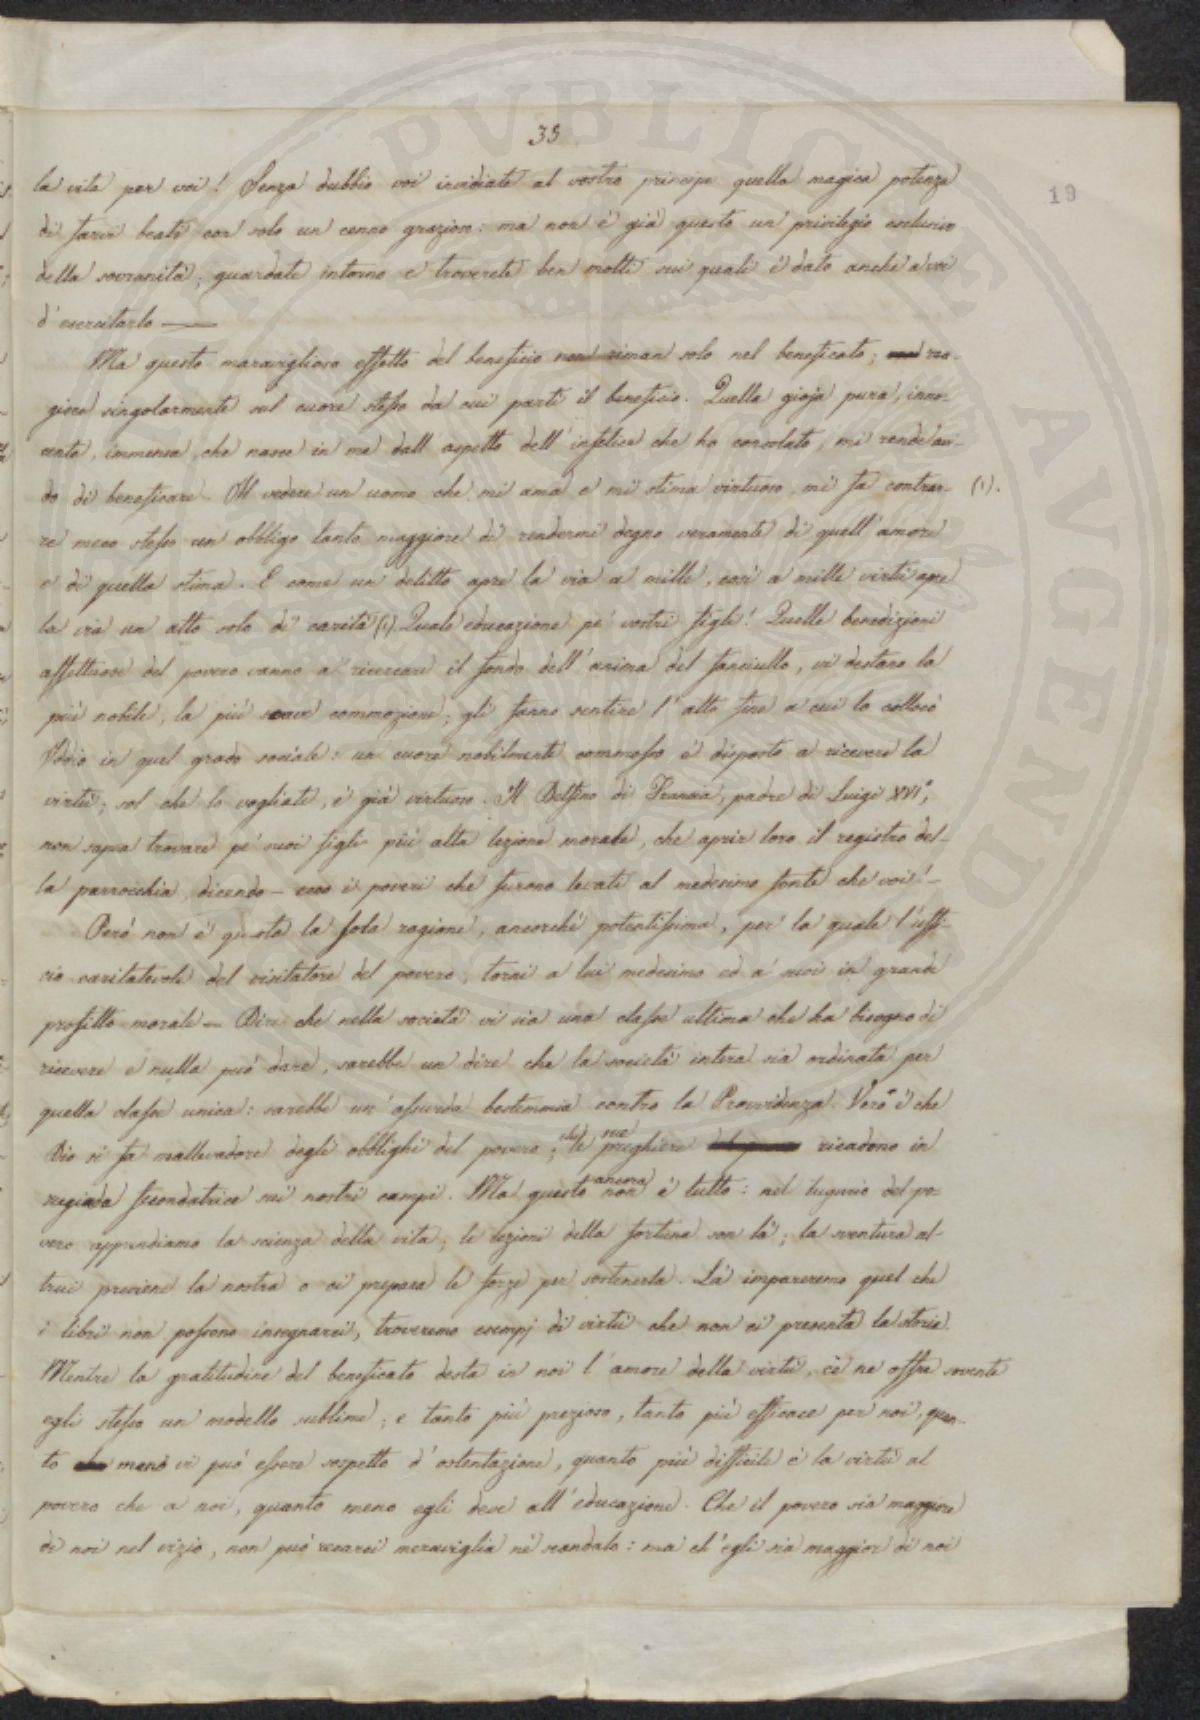 35
19
la vita per voi! Senza dubbio voi invidiate al vostro principe quella magica potenza
di farvi beati con solo un cenno grazioso: ma non è già questo un privilegio esclusivo
della sovranità; guardate intorno e troverete ben molti sui quali è dato anche a voi
d'esercitarlo —
Ma questo maraviglioso effetto del beneficio non riman solo nel beneficato; rea-
gisce singolarmente sul cuore stesso da cui partì il beneficio. Quella gioja pura, inno-
cente, immensa, che nasce in me dall'aspetto dell'infelice che ho consolato, mi rende avi-
do di beneficare. Il vedere un uomo che mi ama e mi stima virtuoso mi fa contrar- (1).
re meco stesso un obbligo tanto maggiore di rendermi degno veramente di quell'amore
e di quella stima. E come un delitto apre la via a mille, così a mille virtù apre
la via un atto solo di carità (1). Quale educazione pe' vostri figli! Quelle benedizioni
affettuose del povero vanno a ricercare il fondo dell'anima del fanciullo, vi destano la
più nobile, la più soave commozione; gli fanno sentire l'alto fine a cui lo collocò
Iddio in quel grado sociale: un cuore nobilmente commosso è disposto a ricevere la
virtù; sol che lo vogliate, è già virtuoso. Il Delfino di Francia, padre di Luigi XVI°,
non sapea trovare pe' suoi figli più alta lezione morale, che aprir loro il registro del-
la parrocchia, dicendo — ecco i poveri che furono levati al medesimo fonte che voi! —
Però non è questa la sola ragione, ancorchè potentissima, per la quale l'uffi-
cio caritatevole del visitatore del povero, torni a lui medesimo ed a' suoi in grande
profitto morale — Dire che nella società vi sia una classe ultima che ha bisogno di
ricevere e nulla può dare, sarebbe un dire che la società intera sia ordinata per
quella classe unica: sarebbe un'assurda bestemmia contro la Provvidenza. Vero è che
Dio si fa mallevadore degli obblighi del povero; che le sue preghiere ricadono in
rugiada fecondatrice sui nostri campi. Ma questo ancora non è tutto: nel tugurio del po-
vero apprendiamo la scienza della vita; le lezioni della fortuna son là; la sventura al-
trui previene la nostra o ci prepara le forze per sostenerla. Là impareremo quel che
i libri non possono insegnarci, troveremo esempj di virtù che non ci presenta la storia.
Mentre la gratitudine del beneficato desta in noi l'amore della virtù, ce ne offre sovente
egli stesso un modello sublime; e tanto più prezioso, tanto più efficace per noi, quan-
to meno vi può essere sospetto d'ostentazione, quanto più difficile è la virtù al
povero che a noi, quanto meno egli deve all'educazione. Che il povero sia maggiore
di noi nel vizio, non può recarci meraviglia nè scandalo: ma ch'egli sia maggior di noi
PVBLICE AVGENDO